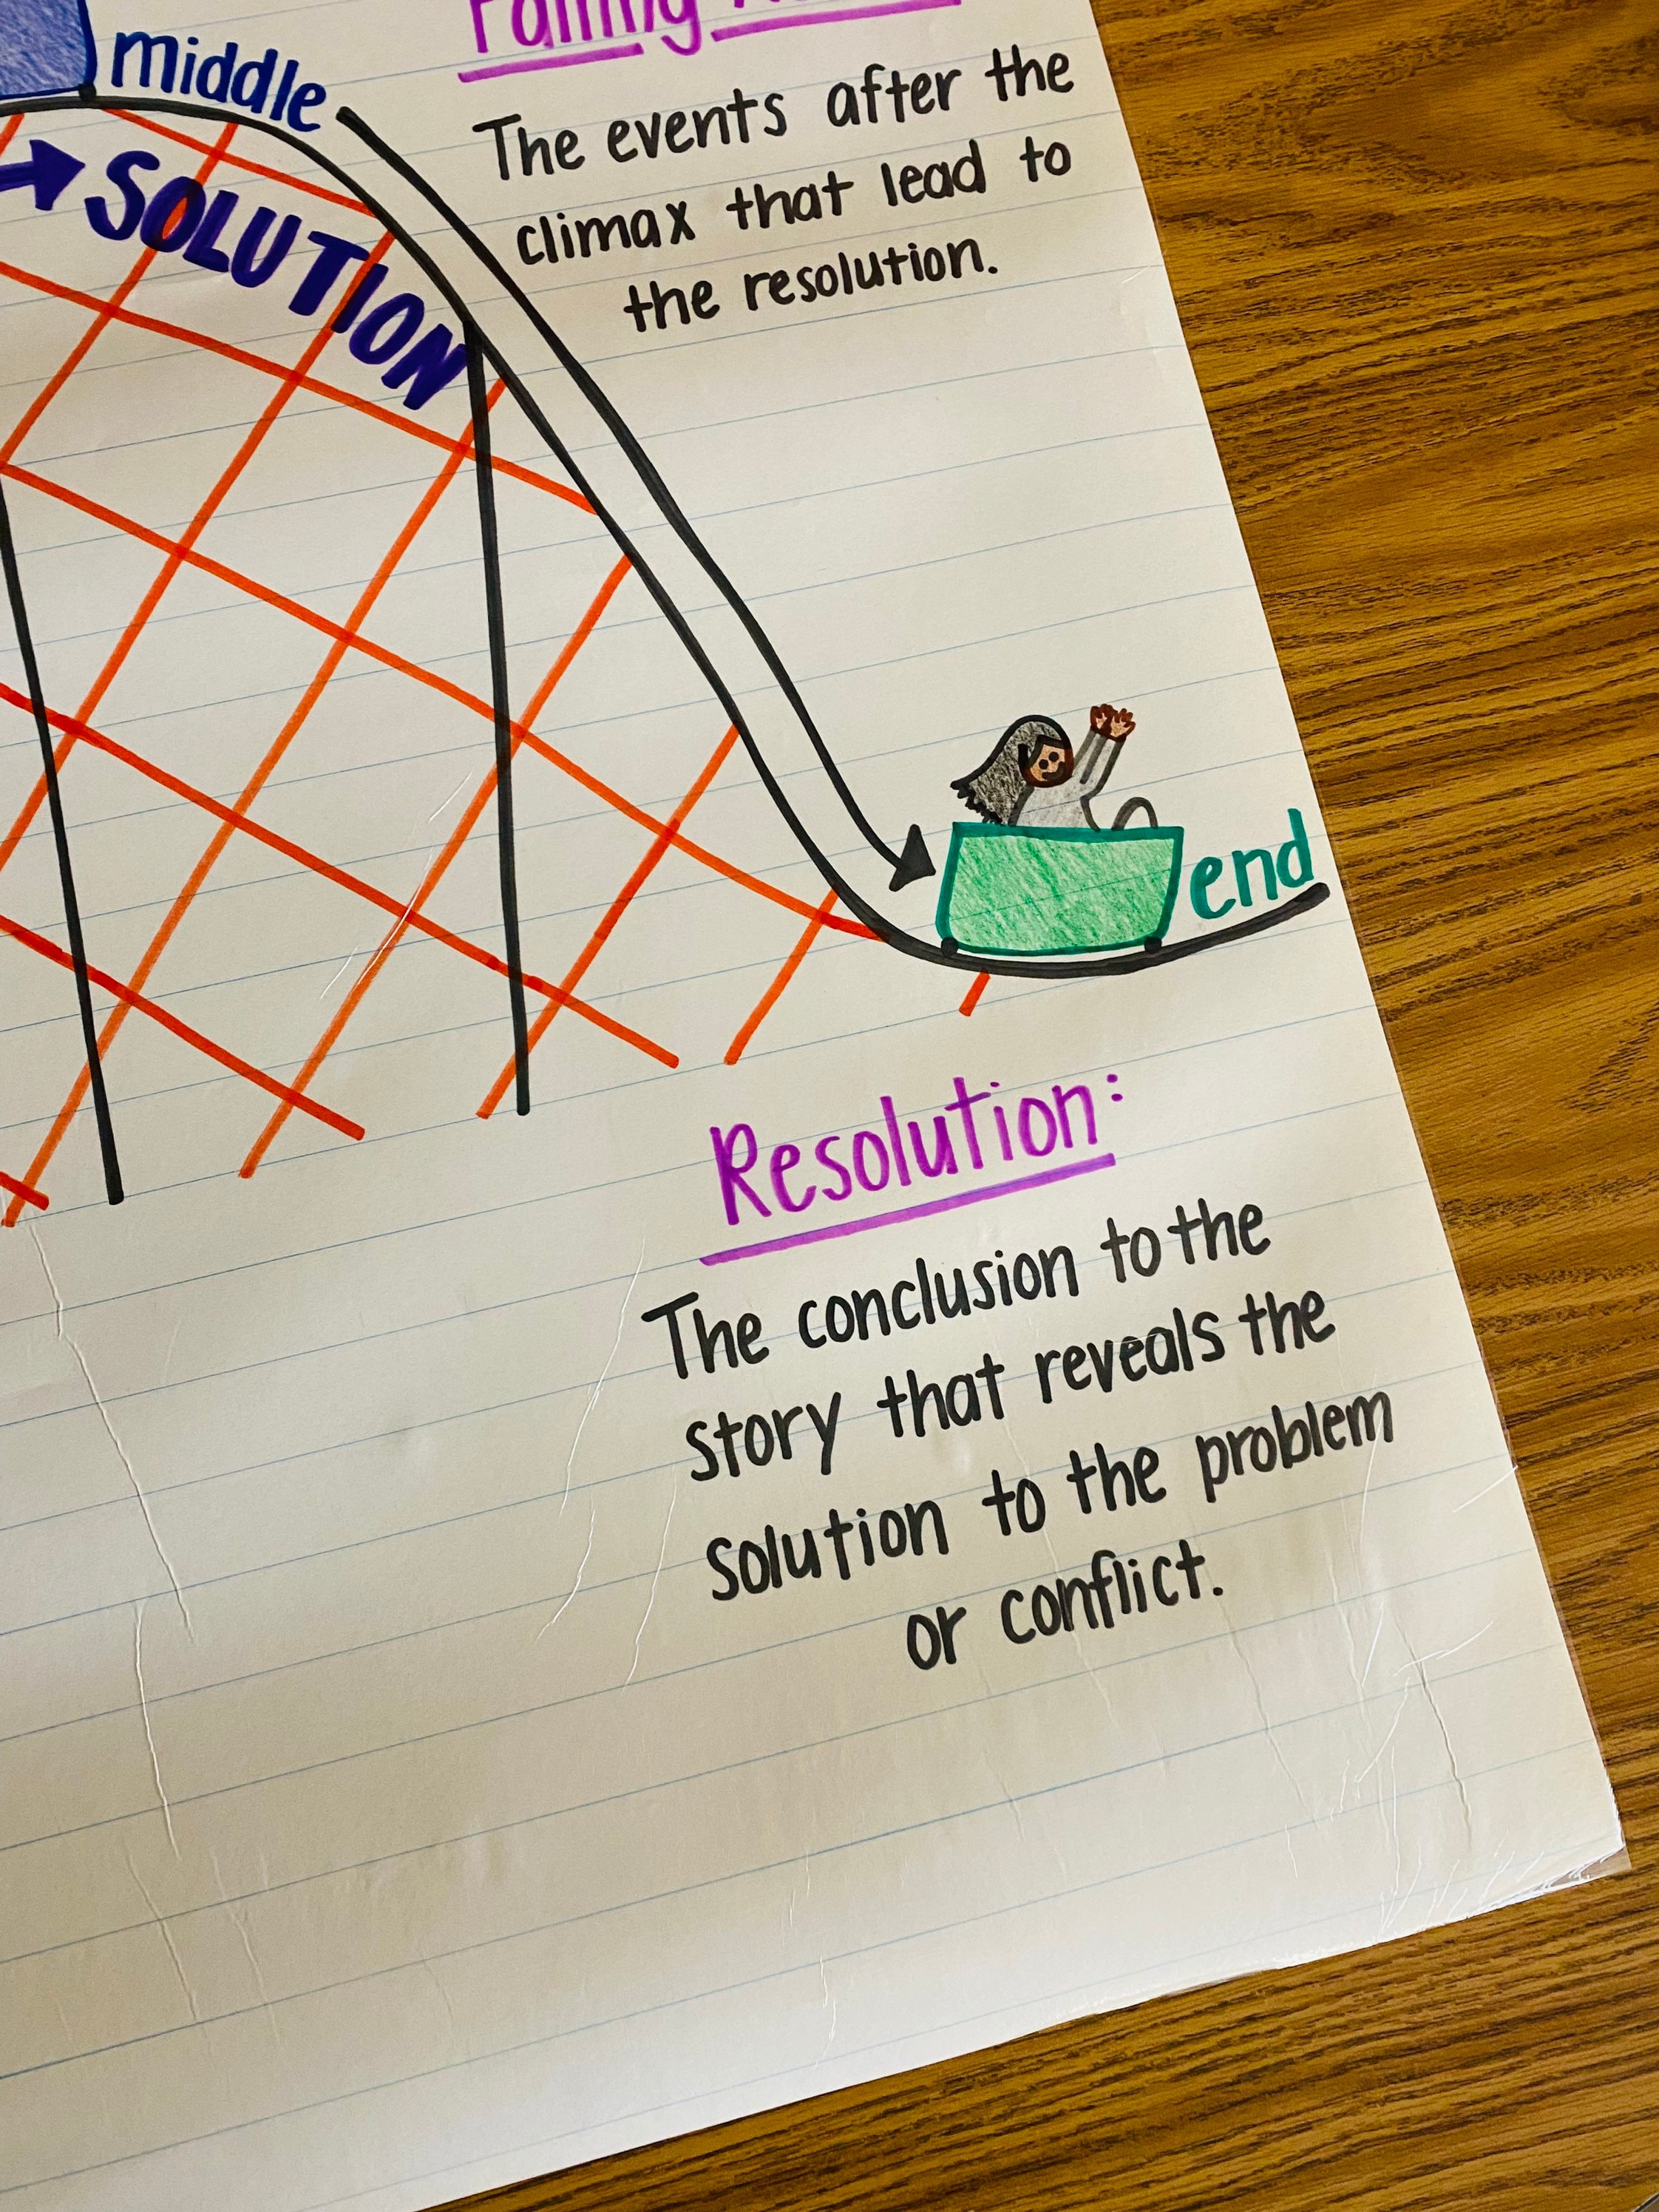 Falling
middle
The events after the
climax that lead to
the resolution.
SOLUTION
end
Resolution:
The conclusion to the
story that reveals the
solution to the problem
or conflict.